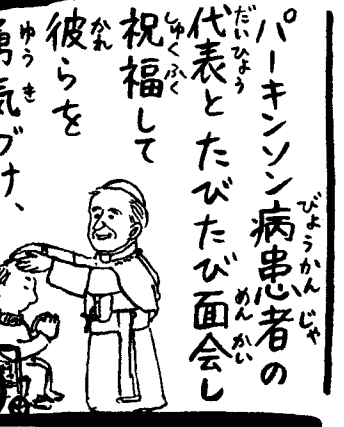 パーキンソン病患者の
代表とたびたび面会し
祝福して
彼らを
勇気づけ、